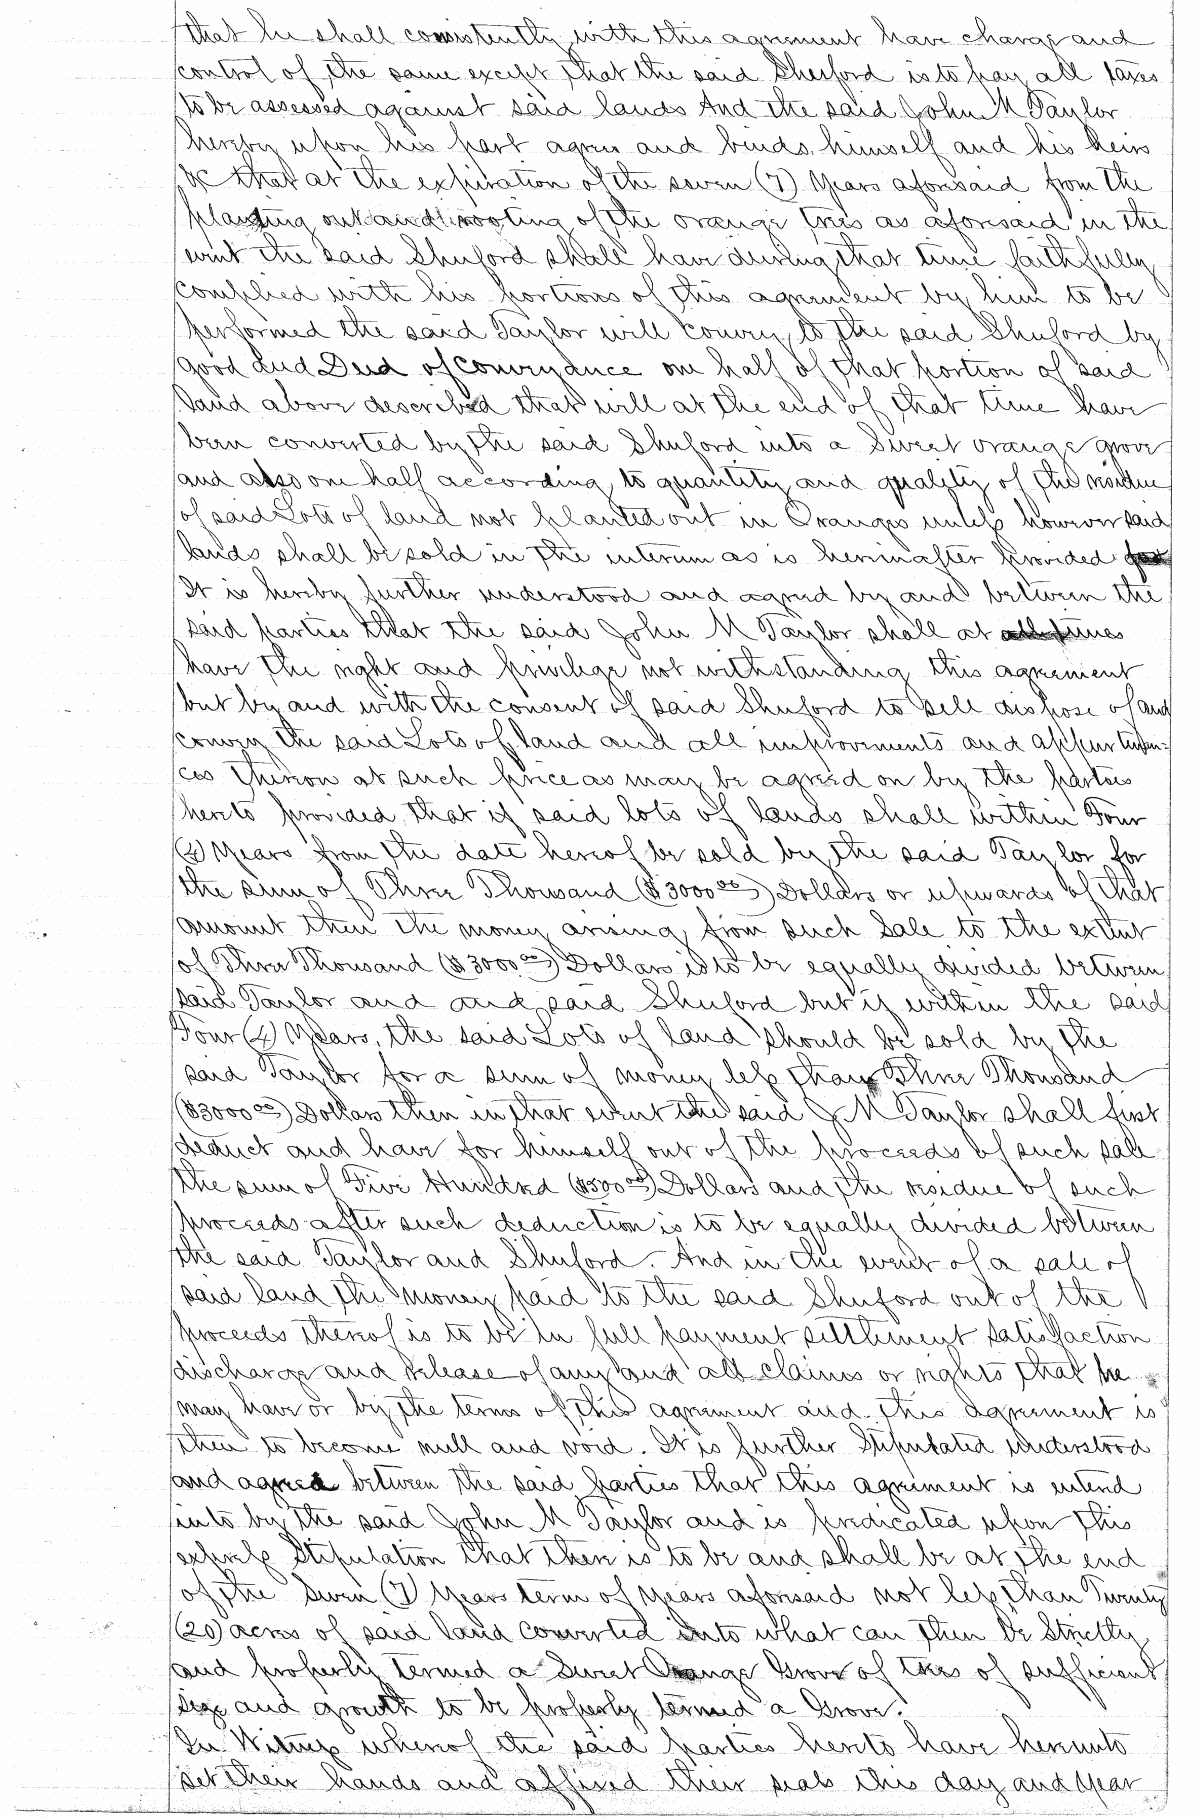 that he shall consistently with this agreement have charge and
control of the same except that the said Shuford is to pay all taxes
to be assessed against said lands And the said John M Taylor
hereby upon his part agrees and binds himself and his heirs
&c that at the expiration of the seven (7) Years aforesaid from the
planting out and rooting of the orange trees as aforesaid in the
event the said Shuford shall have during that time faithfully
complied with his portions of this agreement by him to be
performed the said Taylor will convey to the said Shuford by
good and Deed of Conveyance one half of that portion of said
land above described that will at the end of that time have
been converted by the said Shuford into a Sweet orange grove
and also one half according to quantity and quality of the residue
of said Lots of land not planted out in Oranges unless however said
lands shall be sold in the interum as is hereinafter provided
It is hereby further understood and agreed by and between the
said parties that the said John M Taylor shall at all times
have the right and privilege not withstanding this agreement
but by and with the consent of said Shuford to sell dispose of and
convey the said Lots of land and all improvements and appurtenan-
ces thereon at such price as may be agreed on by the parties
hereto provided that if said lots of lands shall within Four
(4) Years from the date hereof be sold by the said Taylor for
the sum of Three Thousand ($3000 00) Dollars or upwards of that
amount then the money arising from such Sale to the extent
of Three Thousand ($3000 00) Dollars is to be equally divided between
said Taylor and and said Shuford but if within the said
Four (4) Years, the said Lots of land should be sold by the
said Taylor for a sum of money less than Three Thousand
($3000 00) Dollars then in that event the said J M Taylor shall first
deduct and have for himself out of the proceeds of such sale
the sum of Five Hundred ($500 00) Dollars and the residue of such
proceeds after such deduction is to be equally divided between
the said Taylor and Shuford. And in the event of a sale of
said land the money paid to the said Shuford out of the
proceeds thereof is to be in full payment settlement satisfaction
discharge and release of any and all claims or rights that he
may have or by the terms of this agreement and this agreement is
then to become null and void. It is further Stipulated understood
and agreed between the said parties that this agreement is enterd
into by the said John M Taylor and is predicated upon this
express Stipulation that there is to be and shall be at the end
of the Seven (7) Years term of years aforesaid not less than Twenty
(20) acres of said land converted into what can then be Strictly
and properly termed a Sweet Orange Grove of trees of sufficient
size and growth to be properly termed a Grove.
In Witness whereof the said parties hereto have hereunto
set their hands and affixed their seals this day and year